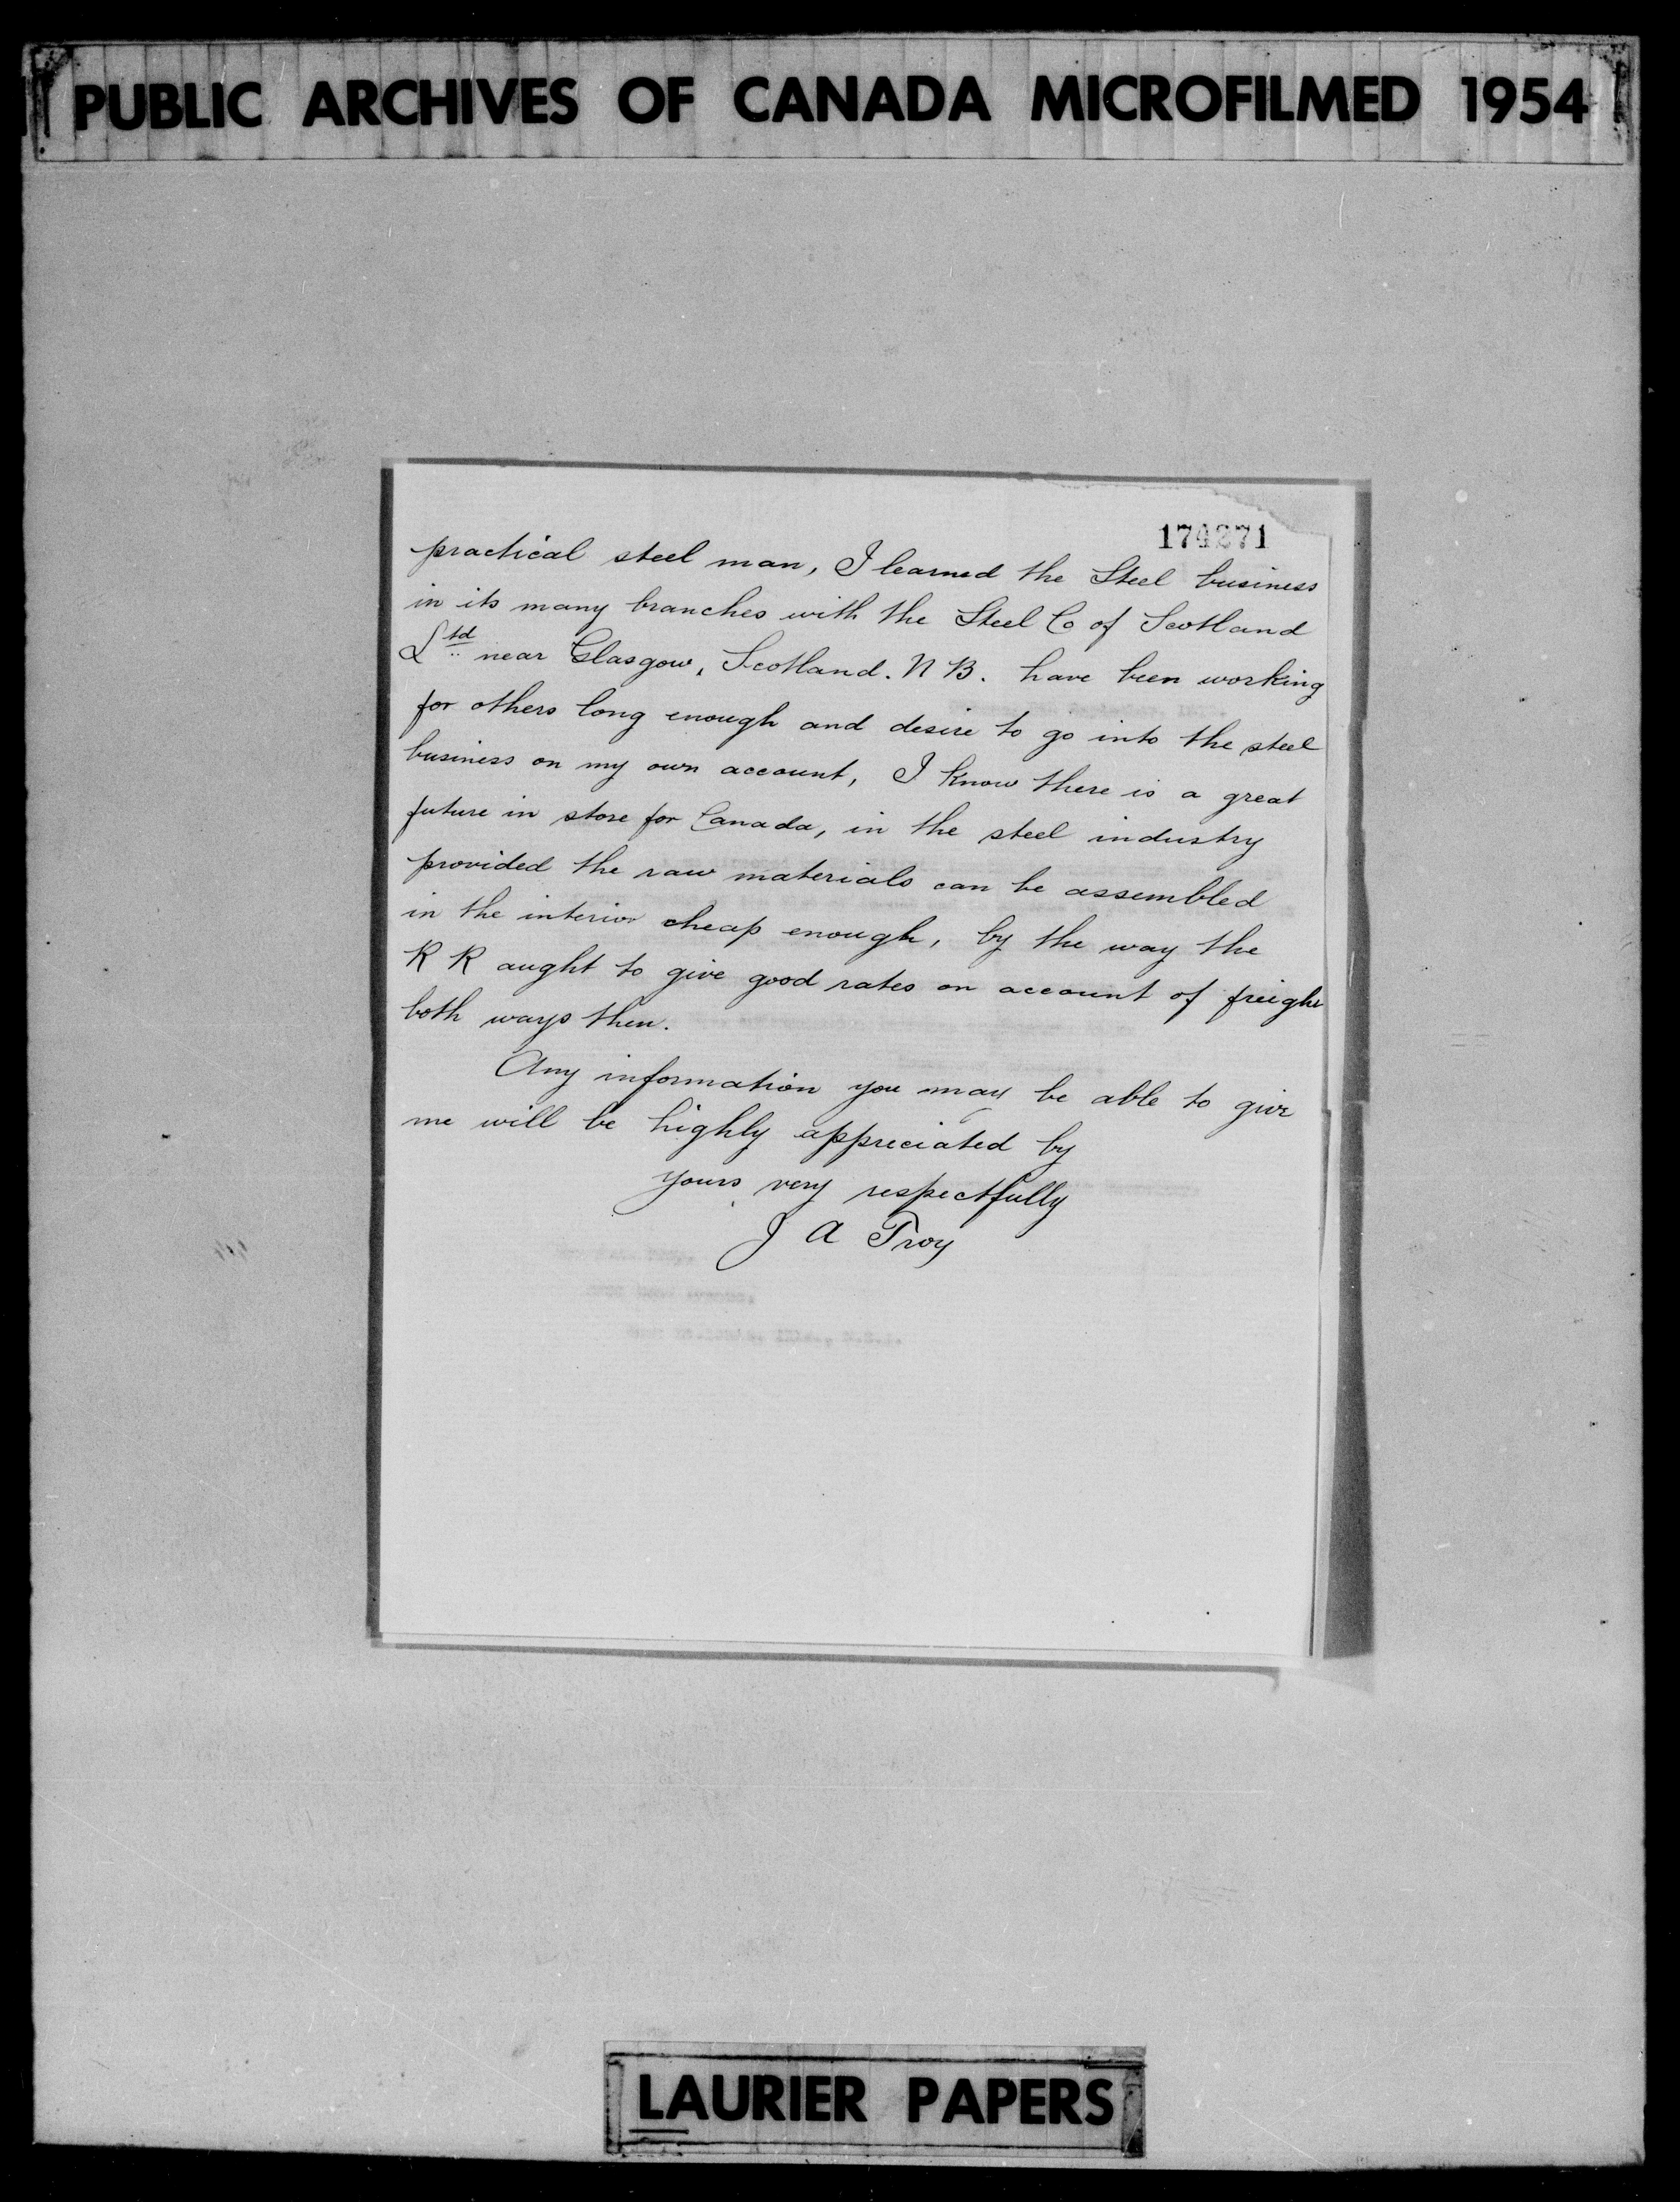 PUBLIC ARCHIVES OF CANADA MICROFILMED 1954
174271
practical steel man, I learned the Steel business
in its many branches with the Steel Co of Scotland
Ltd near Glasgow, Scotland. N B. have been working
for others long enough and desire to go into the steel
business on my own account, I know there is a great
future in store for Canada, in the steel industry
provided the raw materials can be assembled
in the interior cheap enough, by the way the
R R aught to give good rates on account of freight
both ways then.
Any information you may be able to give
me will be highly appreciated by
yours very respectfully
J A Troy
LAURIER PAPERS